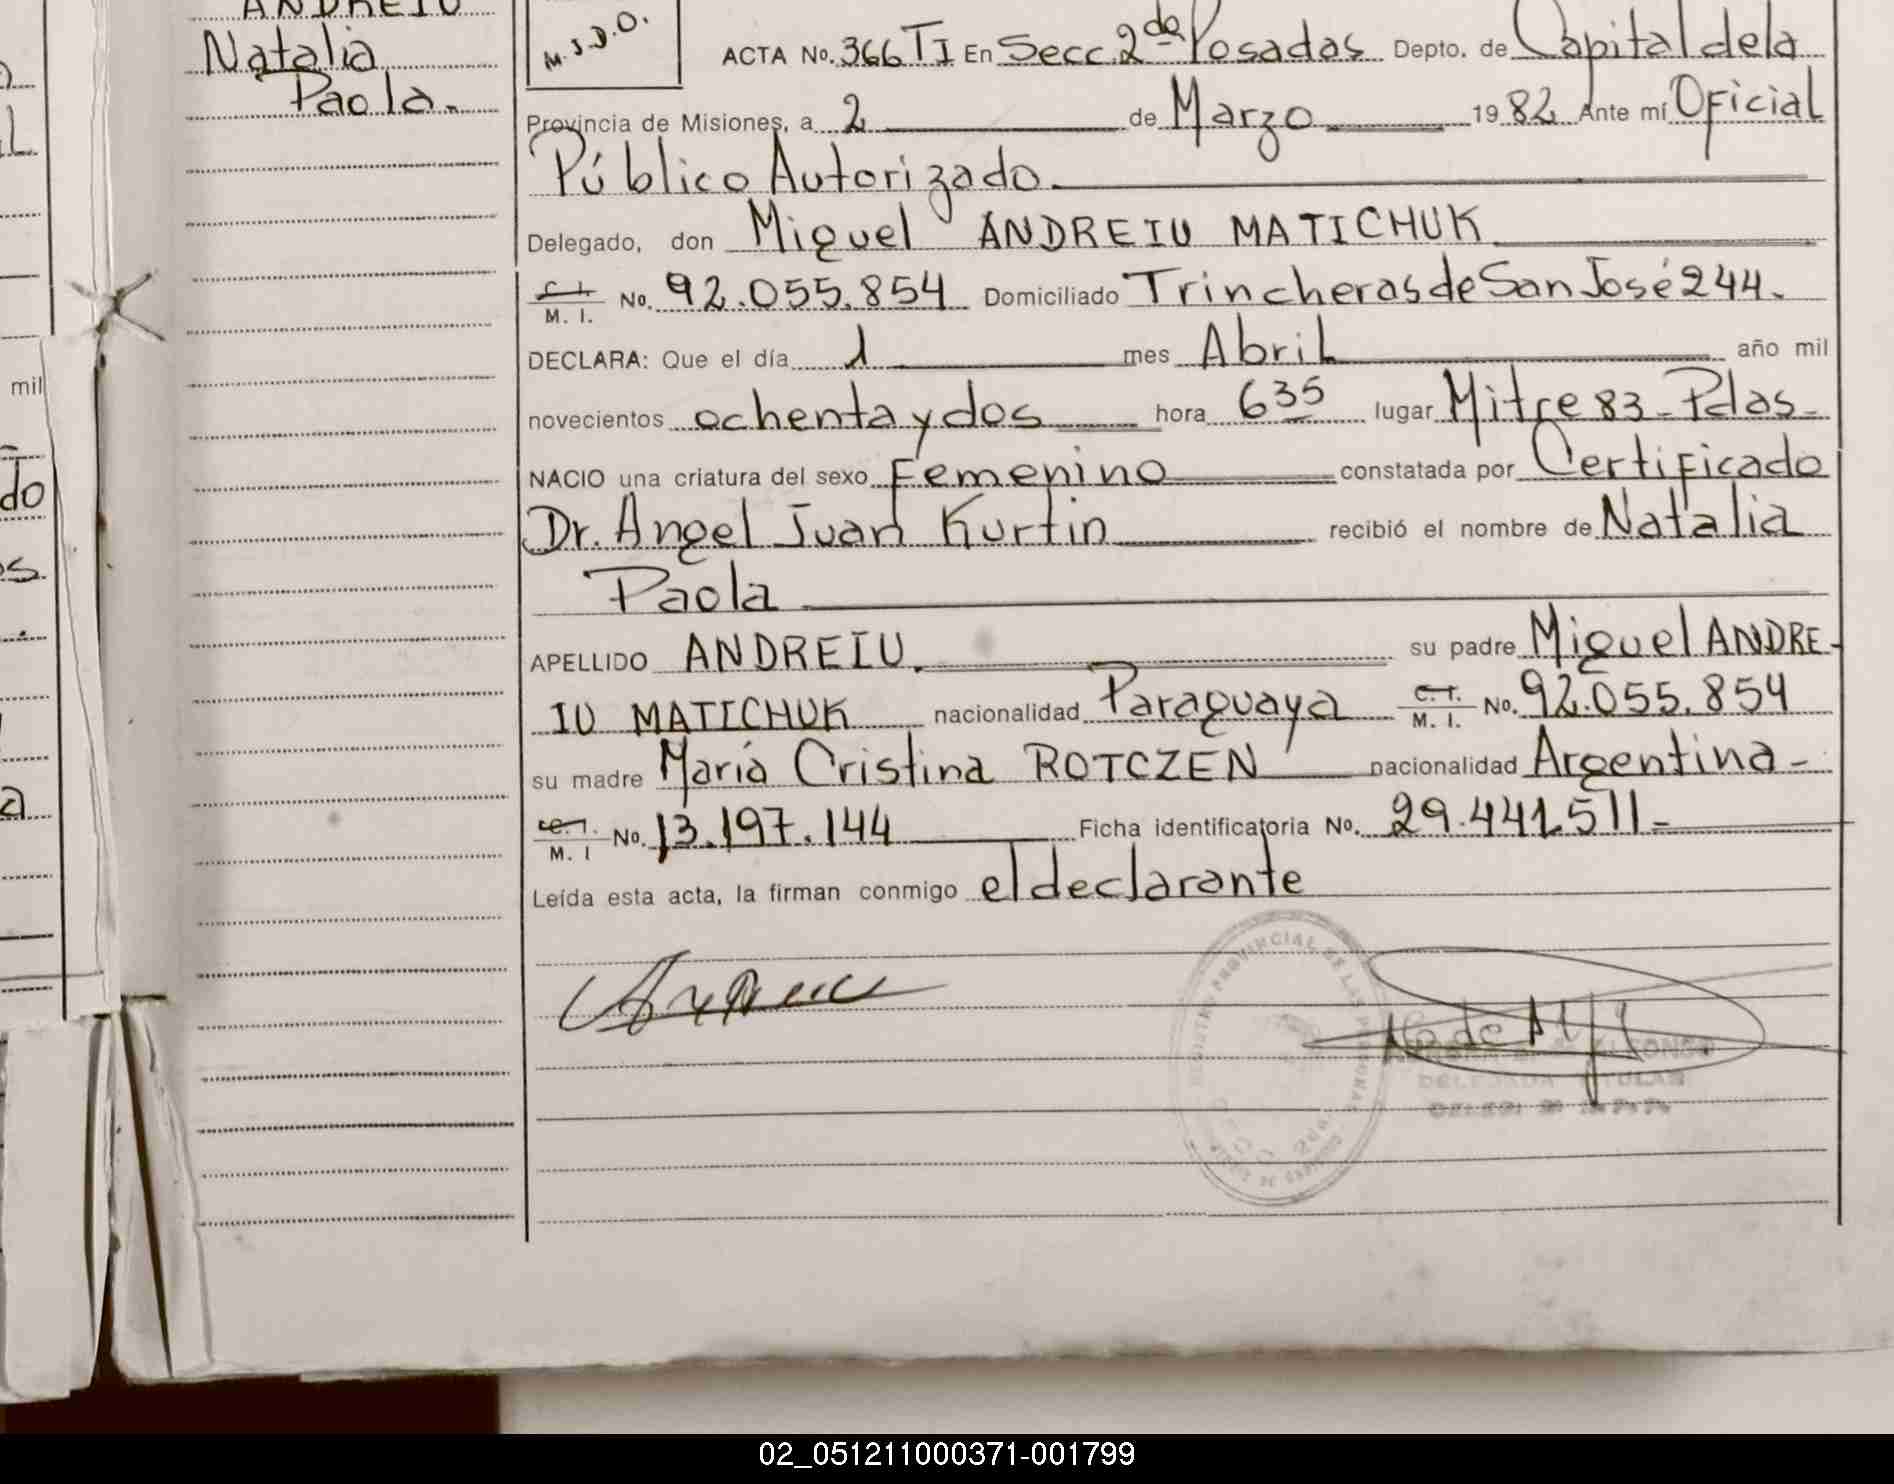 ANDREIU
Natalia
Paola.
M.S.D.O.
ACTA No. 366 TI En Secc. 2da Posadas Depto. de Capital de la
Provincia de Misiones, a 2 de Marzo 1982 Ante mí Oficial
Público Autorizado.
Delegado, don Miguel ANDREIU MATICHUK
C. I. M. I. No. 92.055.854 Domiciliado Trincheras de San José 244.
DECLARA: Que el día 1 mes Abril año mil
novecientos ochenta y dos hora 635 lugar Mitre 83 - Pdas -
NACIO una criatura del sexo Femenino constatada por Certificado
Dr. Angel Juan Kurtin recibió el nombre de Natalia
Paola
APELLIDO ANDREIU. su padre Miguel ANDRE-
IU MATICHUK nacionalidad Paraguaya C. I. M. I. No. 92.055.854
su madre María Cristina ROTCZEN nacionalidad Argentina -
C. I. M. I No. 13.197.144 Ficha identificatoria No. 29.441.511 -
Leída esta acta, la firman conmigo el declarante
mil
do
s.
a
DELEGADA TITULAR
02_051211000371-001799